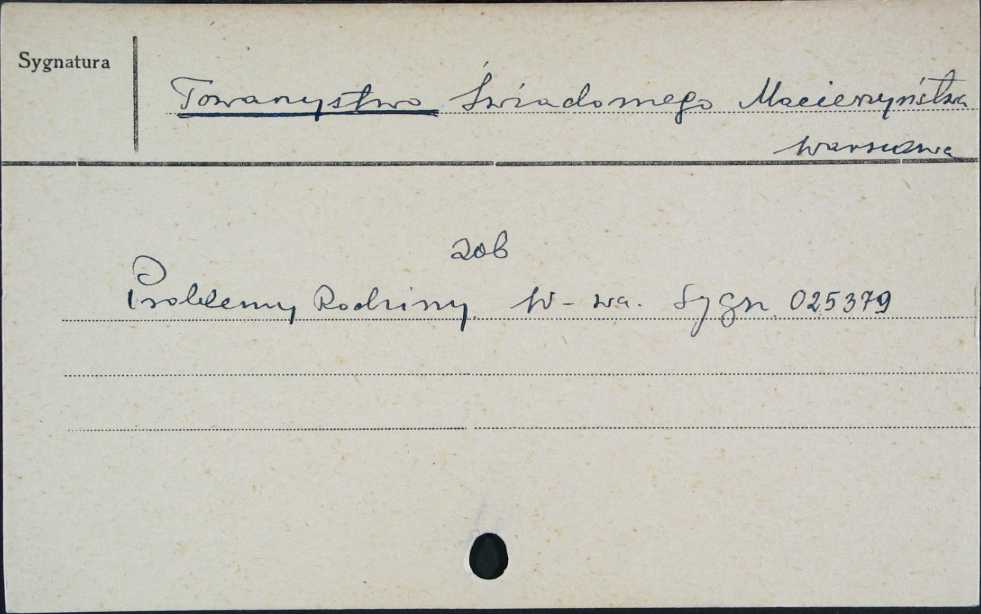 Sygnatura
Towarzystwo Świadomego Macierzyństwa
Warszawa
zob
Problemy Rodziny. W-wa. Sygn. 025379